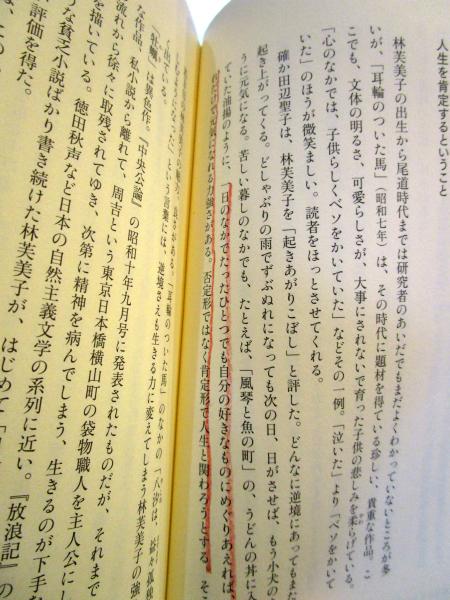 人生を肯定するということ
林芙美子の出生から尾道時代までは研究者のあいだでもまだよくわかっていないところが多
いが、「耳輪のついた馬」(昭和七年)は、その時代に題材を得ている珍しい、貴重な作品。こ
こでも、文体の明るさ、可愛らしさが、大事にされないで育った子供の悲しみを柔らげている。
「心のなかでは、子供らしくベソをかいていた」などその一例。「泣いた」より「ベソをかいて
いた」のほうが微笑ましい。読者をほっとさせてくれる。
確か田辺聖子は、林芙美子を「起きあがりこぼし」と評した。どんなに逆境にあってもまた
起き上がってくる。どしゃぶりの雨でずぶぬれになっても次の日、日がさせば、もう小犬の
うに元気になる。苦しい暮しのなかでも、たとえば、「風琴と魚の町」の、うどんの丼に入
ていた油揚のように、一日のなかでたったひとつでも自分の好きなものにめぐりあえれば、
れだけで元気になれる力強さがある。否定形ではなく肯定形で人生と関わろうとする。そこ
良さがある。「耳輪のついた馬」のなかの「八卦は、益々孤独
という言葉には、逆境さえも生きる力に変えてしまう林芙美子の強
く出ている。
「牡蠣」は異色作。「中央公論」の昭和十年九月号に発表されたものだが、それまで
な作品、私小説から離れて、周吉という東京日本橋横山町の袋物職人を主人公にし
流れから徐々に取残されてゆき、次第に精神を病んでしまう、生きるのが下手な
を描いている。徳田秋声など日本の自然主義文学の系列に近い。『放浪記』の
な貧乏小説ばかり書き続けた林芙美子が、はじめて
評価を得た。